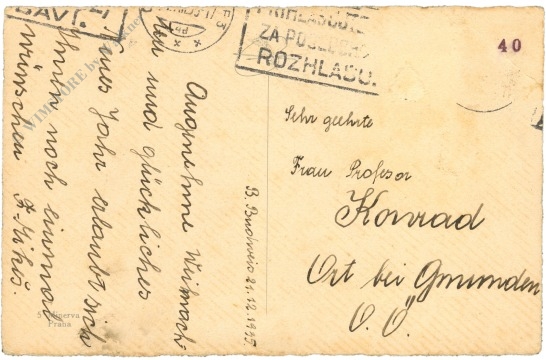 BAVÍ.
PŘIHLASUJTE
ZA POSLUCH.
ROZHLASU.
40
Angenehme Weinach-
ten und glückliches
neues Jahr erlaubt sich
Ihnen noch einmal
wünschen
B. Budweis 21.12.1935.
Sehr geehrte
Frau Profesor
Konrad
Ort bei Gmunden
O.Ö.
5 Minerva
Praha